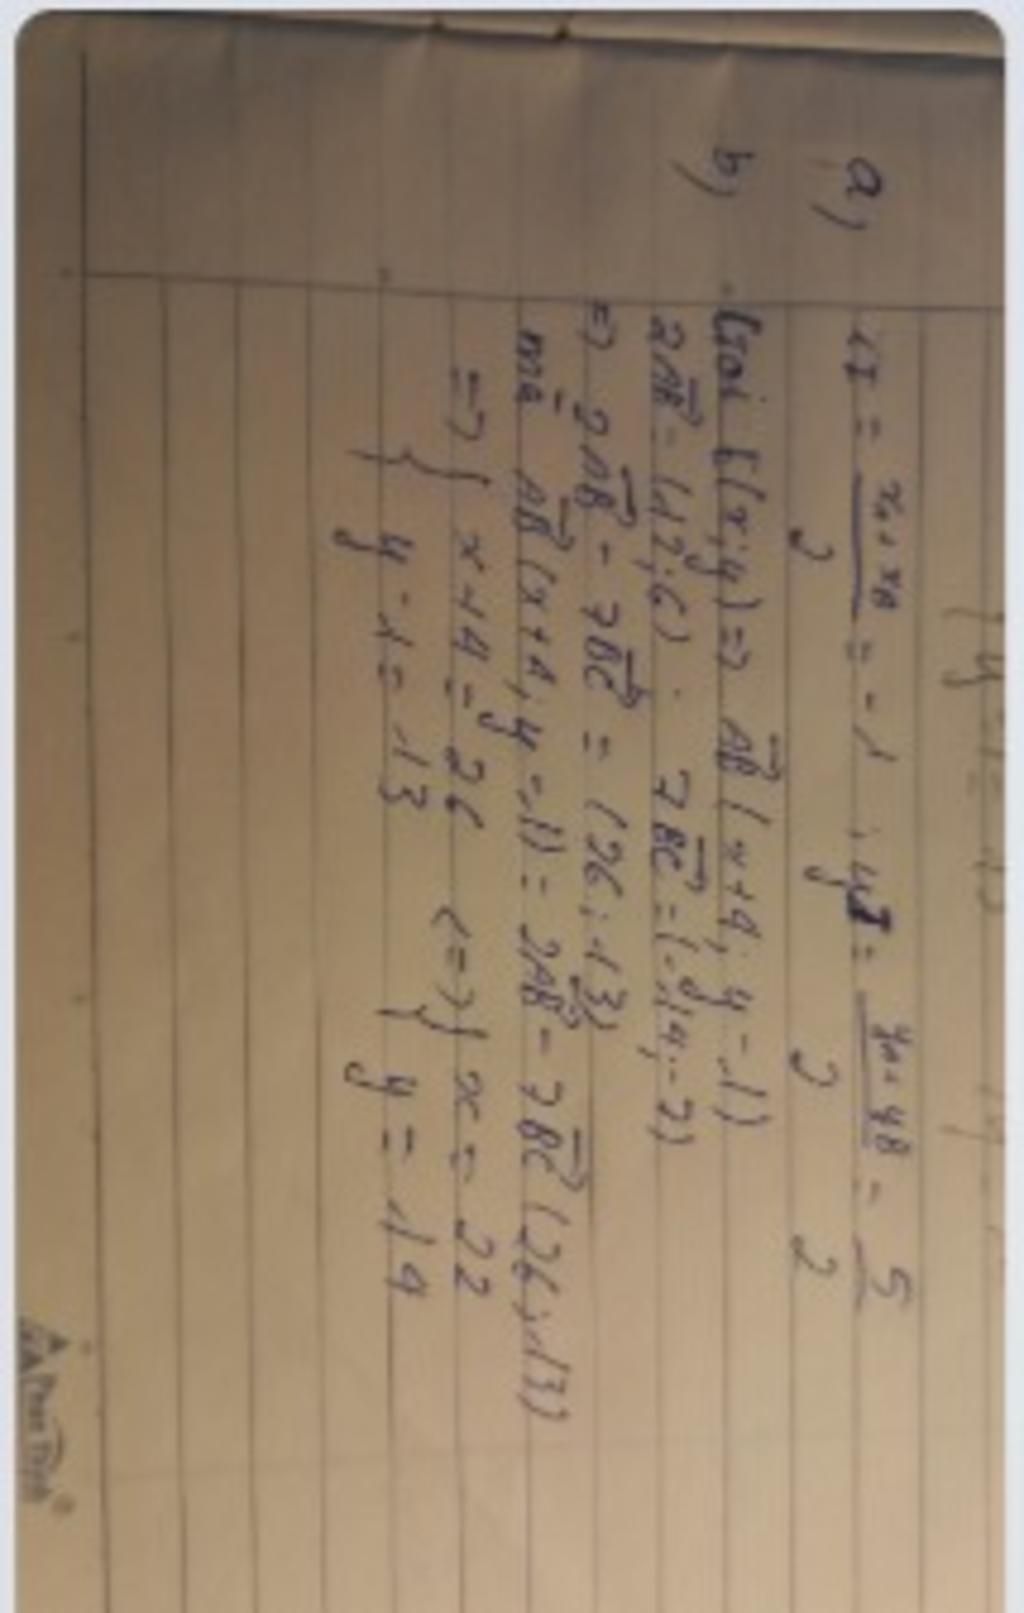 a) xI = xA + xB / 2 = -1 ; yI = yA + yB / 2 = 5 / 2
b) Gọi E(x; y) => AE(x+4; y-1)
2AB = (12; 6) . 7BC = (-14; -7)
=> 2AB - 7BC = (26; 13)
mà AE(x+4; y-1) = 2AB - 7BC (26; 13)
=> { x+4 = 26 <=> { x = 22
{ y-1 = 13 { y = 14